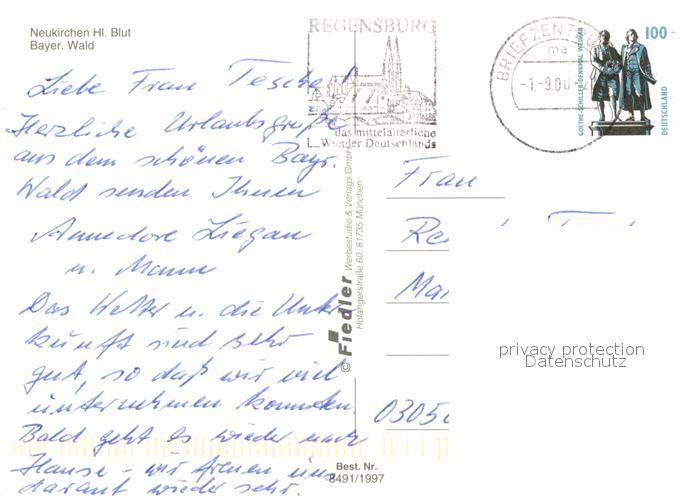 Neukirchen Hl. Blut
Bayer. Wald
Liebe Frau Tesche!
Herzliche Urlaubsgrüße
aus dem schönen Bayr.
Wald senden Ihnen
Annedore Ziegan
u. Mann
Das Wetter u. die Unter
kunft sind sehr
gut, so daß wir viel
unternehmen konnten.
Bald geht es wieder nach
Hause - wir freuen uns
darauf wieder sehr.
REGENSBURG
das mittelalterliche
Wunder Deutschlands
BRIEFZENTRUM
ma
-1.-9.00-
100
GOETHE-SCHILLER-DENKMAL WEIMAR
DEUTSCHLAND
© Fiedler Werbestudio & Verlags GmbH
Hofangerstraße 60, 81735 München
Frau
Re
Ma
0305
privacy protection
Datenschutz
Best. Nr.
8491/1997